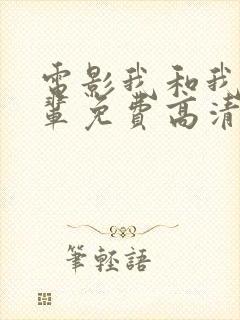 電影我和我
輩免費高清
筆輕語